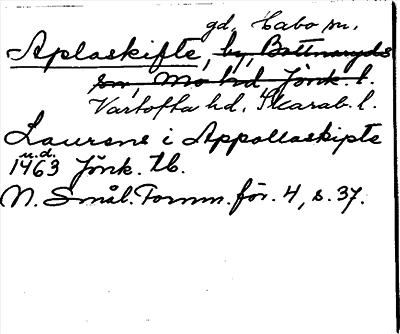 gd, Habo sn.
Aplaskifte, by, Bottnaryds
sn, Mo hd Jönk. l.
Vartofta hd, Skarab. l.
Laurens i Appollaskipte
u.d.
1463 Jönk. tb.
N. Smål. Fornm. för. 4, s. 37.